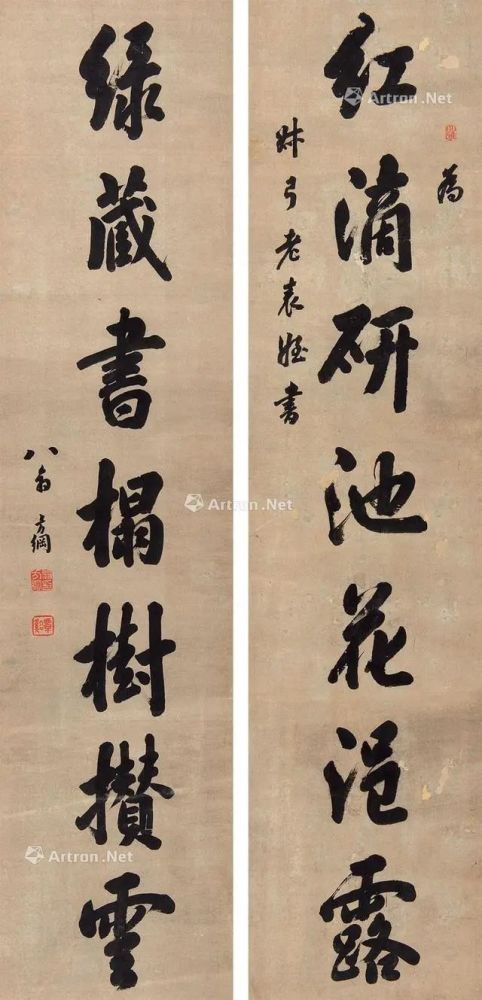 紅滴研池花浥露
為
叔弓老表姪書
綠藏書榻樹攢雲
八翁方綱
Artron.Net
Artron.Net
Artron.Net
Artron.Net
Artron.Net
Artron.Net